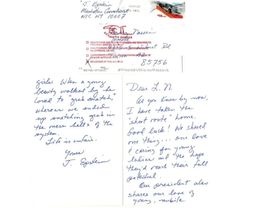 J. Epstein
Manhattan Correctional
NYC NY 10007
85756
Dear L.N.
As you know by now,
I have taken the
"short route" home.
Good luck! We shared
one thing... our love
& caring for young
ladies and the hope
they'd reach their full
potential.
Our president also
shares our love of
young, nubile
girls. When a young
beauty walked by he
loved to "grab snatch,"
whereas we ended
up snatching grub in
the mess halls of the
system.
Life is unfair.
Yours
J. Epstein